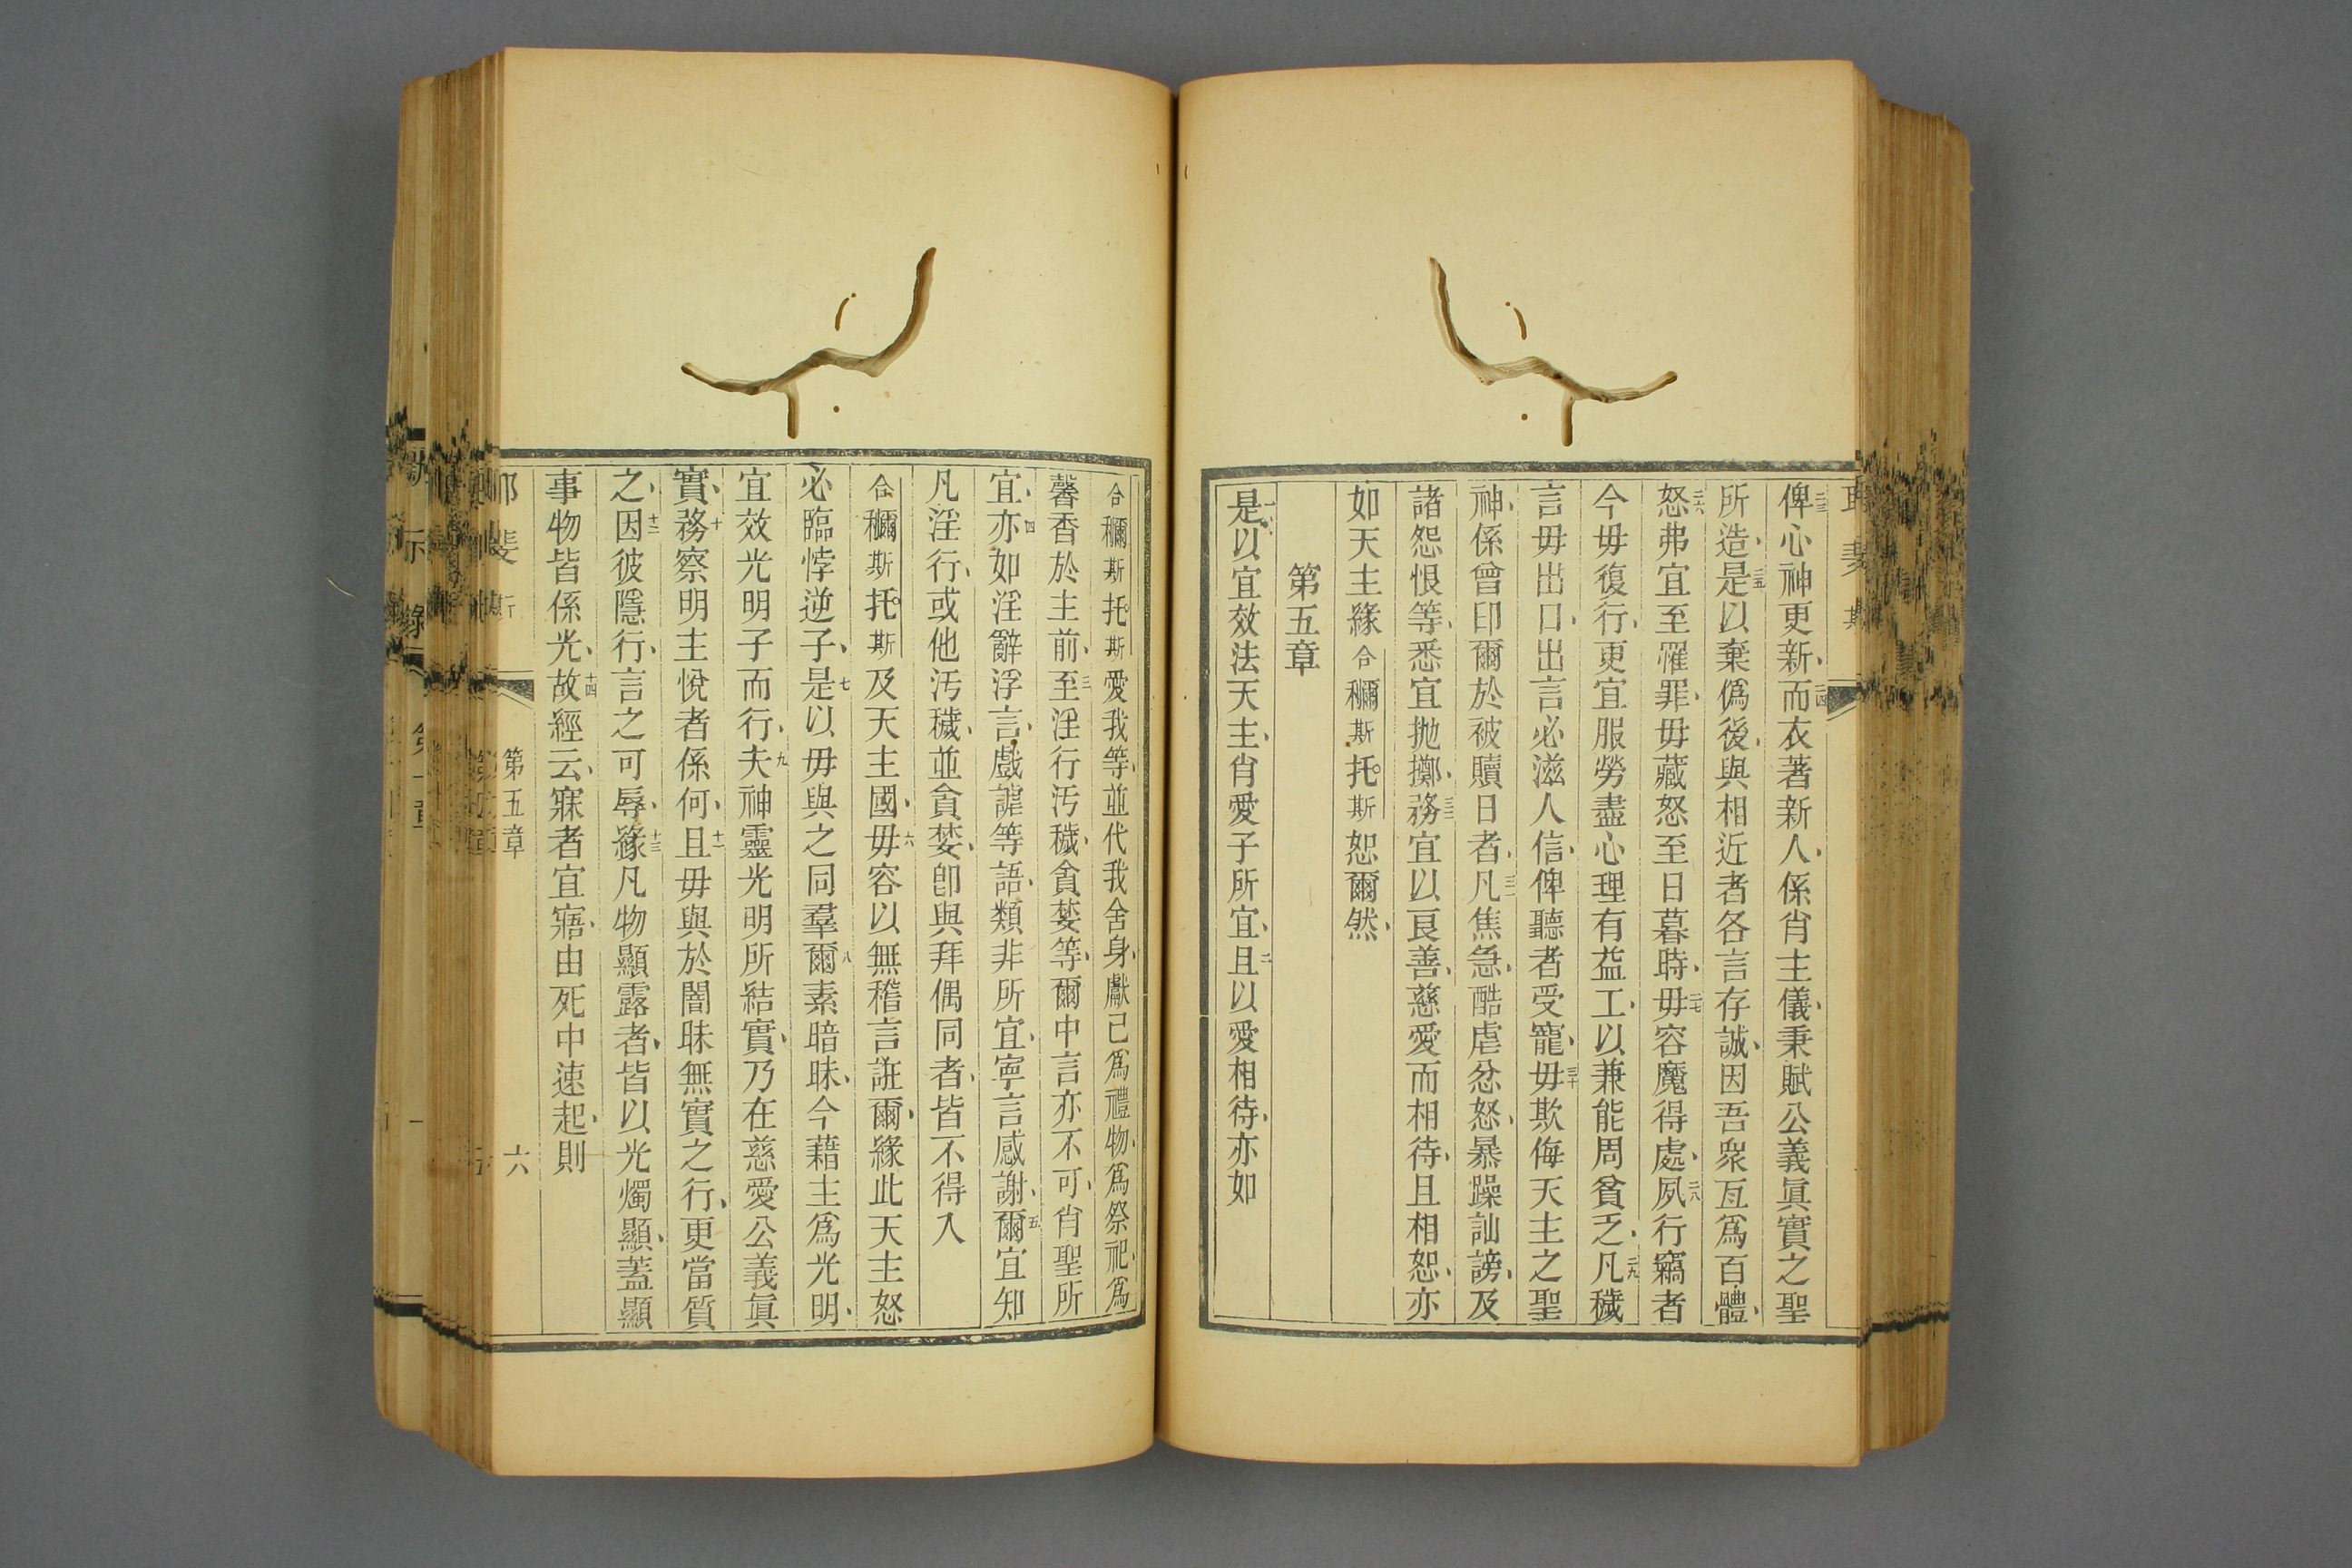 俾心神更新、二四而衣著新人、係肖主儀、秉賦公義眞實之聖
所造、二五是以棄僞後、與相近者各言存誠、因吾衆互爲百體、
二六怒弗宜至罹罪、毋藏怒至日暮時、二七毋容魔得處、二八夙行竊者
今毋復行、更宜服勞盡心理有益工、以兼能周貧乏、二九凡穢
言毋出口、出言必滋人信、俾聽者受寵、三十毋欺侮天主之聖
神、係曾印爾於被贖日者、三一凡焦急、酷虐忿怒、暴躁訕謗、及
諸怨恨等、悉宜抛擲、三二務宜以良善、慈愛而相待、且相恕、亦
如天主緣合穪斯托斯恕爾然、
第五章
一是以宜效法天主、肖愛子所宜、二且以愛相待、亦如
合穪斯托斯愛我等、並代我舍身、獻己爲禮物、爲祭祀、爲
馨香於主前、三至淫行汚穢、貪婪等、爾中言亦不可、肖聖所
宜、四亦如淫辭浮言、戲謔等語、類非所宜、寧言感謝、五爾宜知
凡淫行、或他汚穢、並貪婪、卽與拜偶同者、皆不得入
合穪斯托斯及天主國、六毋容以無稽言誑爾、緣此天主怒
必臨悖逆子、七是以毋與之同羣、八爾素暗昧、今藉主爲光明、
宜效光明子而行、九夫神靈光明所結實、乃在慈愛公義眞
實、十務察明主悅者係何、十一且毋與於闇昧無實之行、更當質
之、十二因彼隱行、言之可辱、十三緣凡物顯露者、皆以光燭顯、蓋顯
事物皆係光、十四故經云、寐者宜寤、由死中速起、則
第五章
六